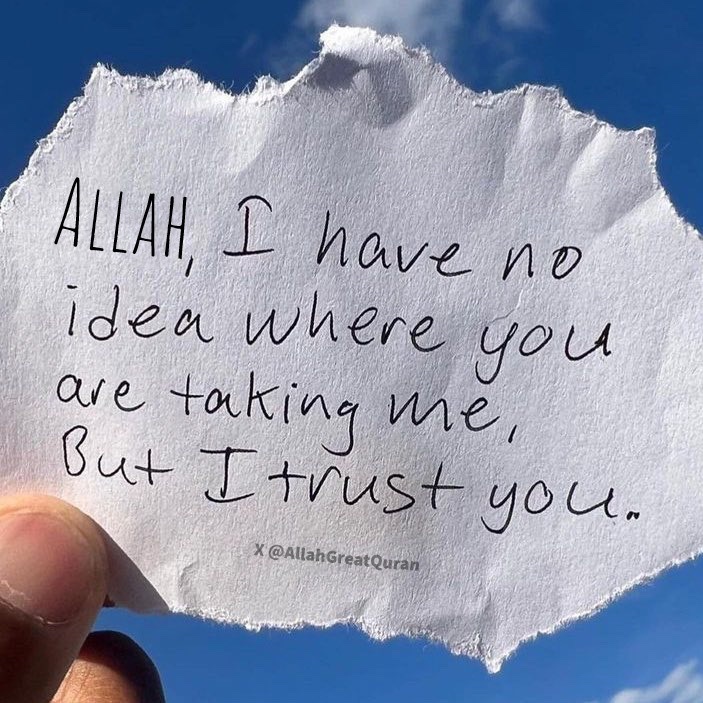 ALLAH, I have no
idea where you
are taking me,
But I trust you.
X @AllahGreatQuran